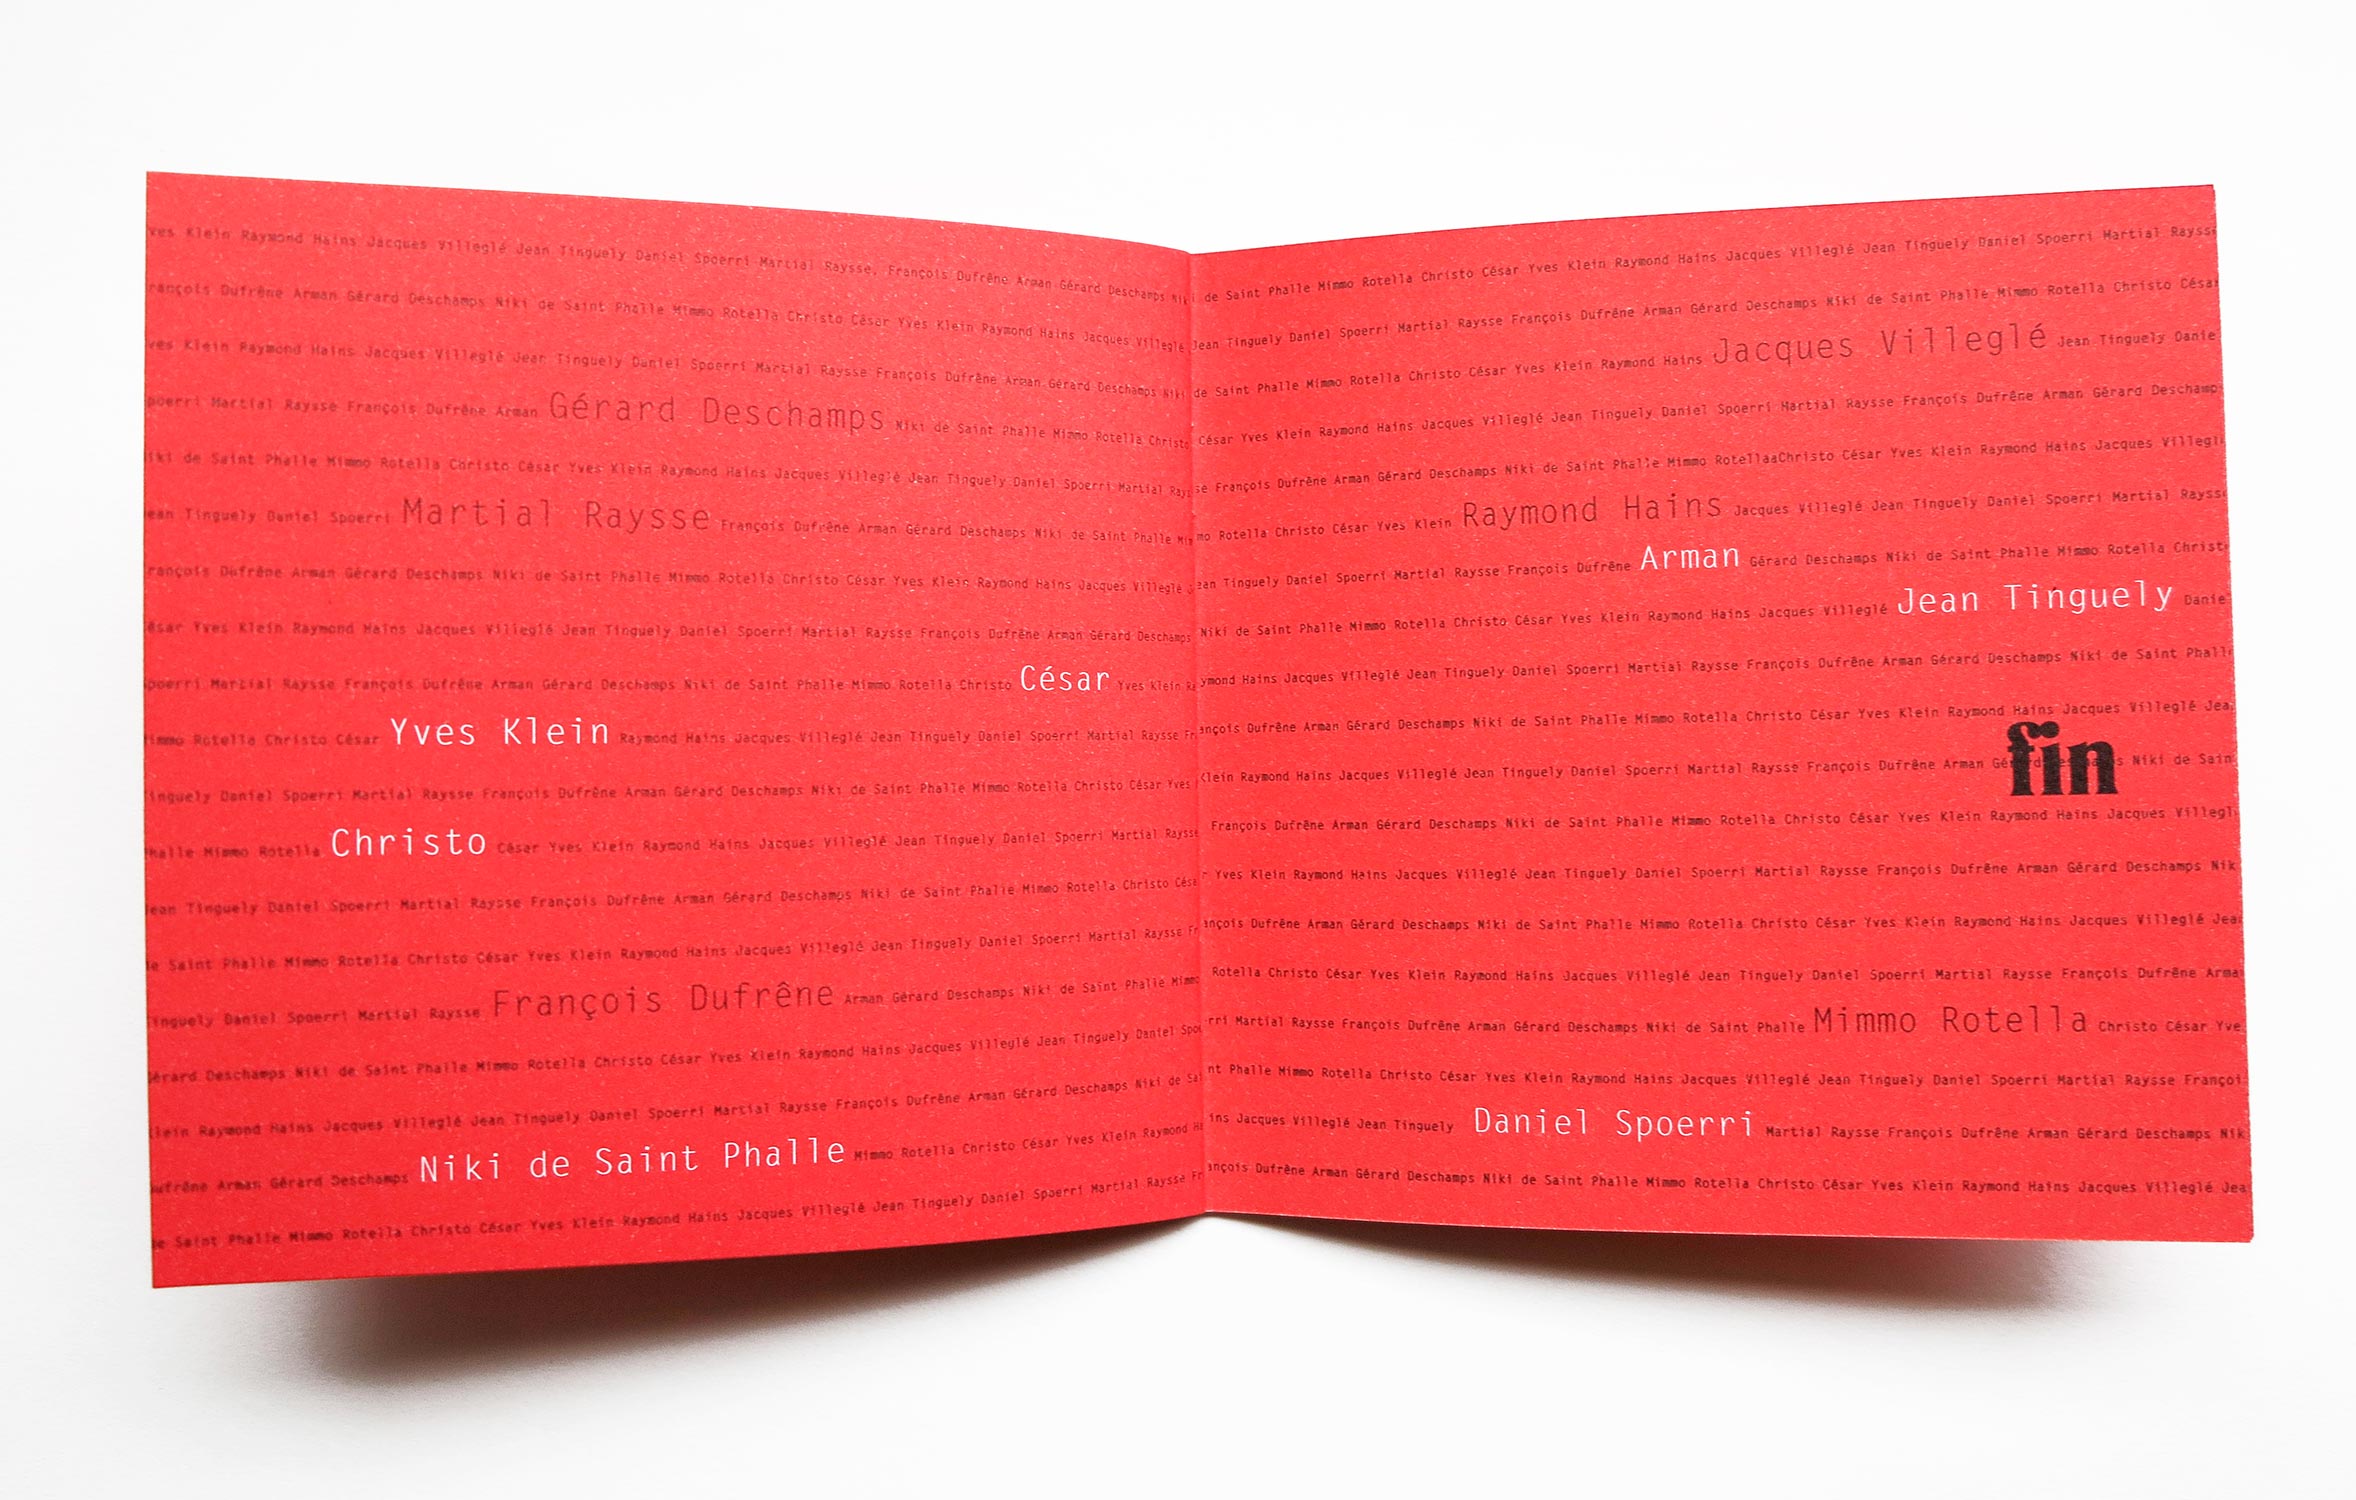 Klein Raymond Hains Jacques Villeglé Jean Tinguely Daniel Spoerri Martial Raysse, François Dufrêne Arman Gérard Deschamps
Dufrêne Arman Gérard Deschamps Niki de Saint Phalle Mimmo Rotella Christo César Yves Klein Raymond Hains Jacques Villeglé
Klein Raymond Hains Jacques Villeglé Jean Tinguely Daniel Spoerri Martial Raysse François Dufrêne Arman Gérard Deschamps Niki
poerri Martial Raysse François Dufrêne Arman Gérard Deschamps Niki de Saint Phalle Mimmo Rotella Christo
iki de Saint Phalle Mimmo Rotella Christo César Yves Klein Raymond Hains Jacques Villeglé Jean Tinguely Daniel Spoerri Martial
ean Tinguely Daniel Spoerri Martial Raysse François Dufrêne Arman Gérard Deschamps Niki de Saint Phalle
rançois Dufrêne Arman Gérard Deschamps Niki de Saint Phalle Mimmo Rotella Christo César Yves Klein Raymond Hains Jacques Villeglé
ésar Yves Klein Raymond Hains Jacques Villeglé Jean Tinguely Daniel Spoerri Martial Raysse François Dufrêne Arman Gérard Deschamps
poerri Martial Raysse François Dufrêne Arman Gérard Deschamps Niki de Saint Phalle Mimmo Rotella Christo César Yves Klein
Rotella Christo César Yves Klein Raymond Hains Jacques Villeglé Jean Tinguely Daniel Spoerri Martial Raysse
inguely Daniel Spoerri Martial Raysse François Dufrêne Arman Gérard Deschamps Niki de Saint Phalle Mimmo Rotella Christo César Yves
halle Mimmo Rotella Christo César Yves Klein Raymond Hains Jacques Villeglé Jean Tinguely Daniel Spoerri Martial Raysse
ean Tinguely Daniel Spoerri Martial Raysse François Dufrêne Arman Gérard Deschamps Niki de Saint Phalle Mimmo Rotella Christo
Saint Phalle Mimmo Rotella Christo César Yves Klein Raymond Hains Jacques Villeglé Jean Tinguely Daniel Spoerri Martial Raysse
inguely Daniel Spoerri Martial Raysse François Dufrêne Arman Gérard Deschamps Niki de Saint Phalle Mimmo
érard Deschamps Niki de Saint Phalle Mimmo Rotella Christo César Yves Klein Raymond Hains Jacques Villeglé Jean Tinguely Daniel
lein Raymond Hains Jacques Villeglé Jean Tinguely Daniel Spoerri Martial Raysse François Dufrêne Arman Gérard Deschamps Niki de
ufrêne Arman Gérard Deschamps Niki de Saint Phalle Mimmo Rotella Christo César Yves Klein Raymond
Saint Phalle Mimmo Rotella Christo César Yves Klein Raymond Hains Jacques Villeglé Jean Tinguely Daniel Spoerri Martial Raysse
de Saint Phalle Mimmo Rotella Christo César Yves Klein Raymond Hains Jacques Villeglé Jean Tinguely Daniel Spoerri Martial Rayss
Jean Tinguely Daniel Spoerri Martial Raysse François Dufrêne Arman Gérard Deschamps Niki de Saint Phalle Mimmo Rotella Christo César
de Saint Phalle Mimmo Rotella Christo César Yves Klein Raymond Hains Jacques Villeglé Jean Tinguely Danie
César Yves Klein Raymond Hains Jacques Villeglé Jean Tinguely Daniel Spoerri Martial Raysse François Dufrêne Arman Gérard Deschamp
se François Dufrêne Arman Gérard Deschamps Niki de Saint Phalle Mimmo RotellaaChristo César Yves Klein Raymond Hains Jacques Villegl
mo Rotella Christo César Yves Klein Raymond Hains Jacques Villeglé Jean Tinguely Daniel Spoerri Martial Rayss
ean Tinguely Daniel Spoerri Martial Raysse François Dufrêne Arman Gérard Deschamps Niki de Saint Phalle Mimmo Rotella Christ
Niki de Saint Phalle Mimmo Rotella Christo César Yves Klein Raymond Hains Jacques Villeglé Jean Tinguely Danie
ymond Hains Jacques Villeglé Jean Tinguely Daniel Spoerri Martial Raysse François Dufrêne Arman Gérard Deschamps Niki de Saint Phall
ançois Dufrêne Arman Gérard Deschamps Niki de Saint Phalle Mimmo Rotella Christo César Yves Klein Raymond Hains Jacques Villeglé Jea
Klein Raymond Hains Jacques Villeglé Jean Tinguely Daniel Spoerri Martial Raysse François Dufrêne Arman fin Niki de Sain
François Dufrêne Arman Gérard Deschamps Niki de Saint Phalle Mimmo Rotella Christo César Yves Klein Raymond Hains Jacques Villegl
r Yves Klein Raymond Hains Jacques Villeglé Jean Tinguely Daniel Spoerri Martial Raysse François Dufrêne Arman Gérard Deschamps Nik
ançois Dufrêne Arman Gérard Deschamps Niki de Saint Phalle Mimmo Rotella Christo César Yves Klein Raymond Hains Jacques Villeglé Jea
Rotella Christo César Yves Klein Raymond Hains Jacques Villeglé Jean Tinguely Daniel Spoerri Martial Raysse François Dufrêne Arma
rri Martial Raysse François Dufrêne Arman Gérard Deschamps Niki de Saint Phalle Mimmo Rotella Christo César Yve
nt Phalle Mimmo Rotella Christo César Yves Klein Raymond Hains Jacques Villeglé Jean Tinguely Daniel Spoerri Martial Raysse Françoi
ins Jacques Villeglé Jean Tinguely Daniel Spoerri Martial Raysse François Dufrêne Arman Gérard Deschamps Nik
ançois Dufrêne Arman Gérard Deschamps Niki de Saint Phalle Mimmo Rotella Christo César Yves Klein Raymond Hains Jacques Villeglé Jea